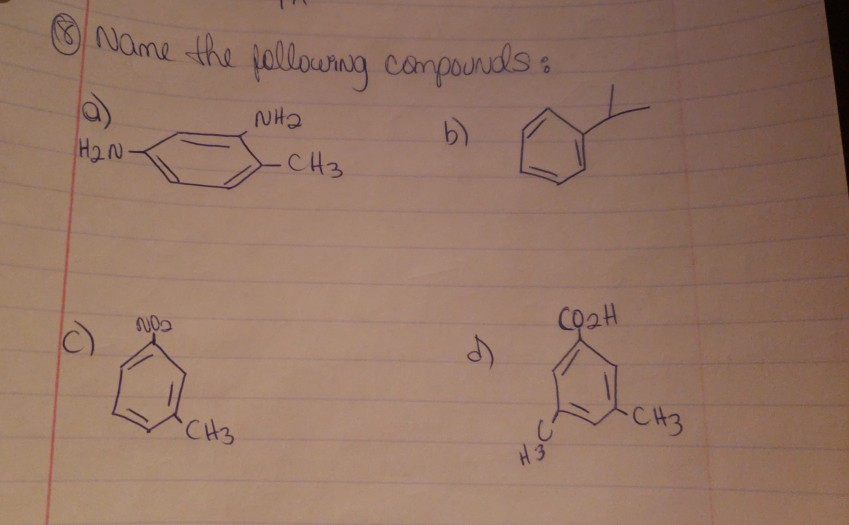 18 Name the following compounds:
a) NH2
H2N CH3
b)
c) NO2
CH3
d) CO2H
CH3
C
H3